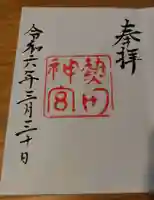 奉拝
熱田
神宮
令和六年三月三十日